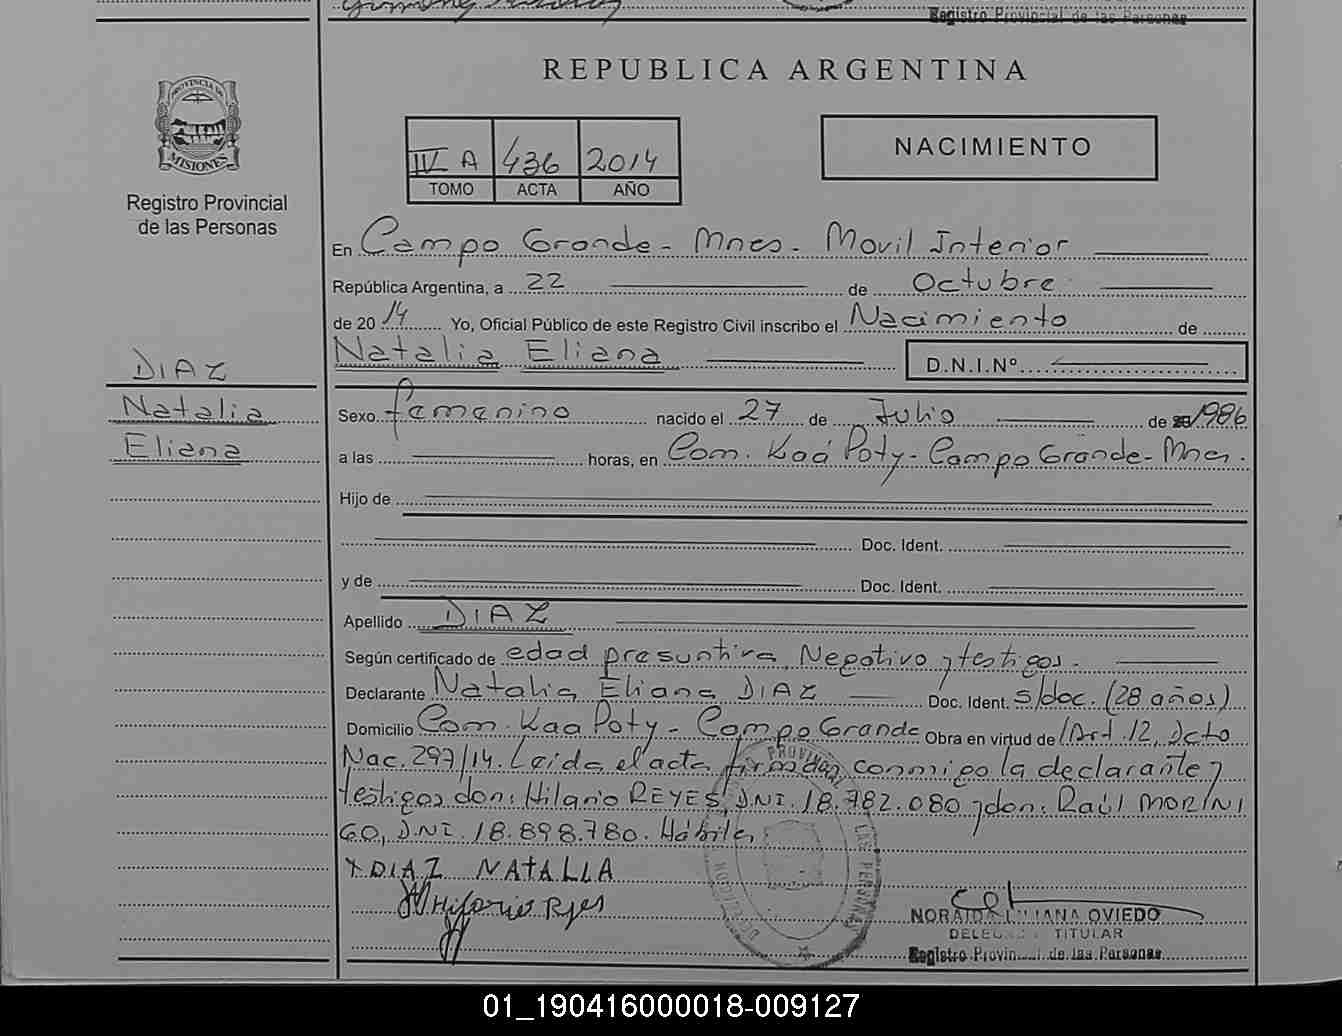 Registro Provincial de las Personas
PROVINCIA DE
MISIONES
Registro Provincial
de las Personas
REPUBLICA ARGENTINA
IV A 436 2014
TOMO ACTA AÑO
NACIMIENTO
En Campo Grande - Mnes. Movil Interior
República Argentina, a 22 de Octubre
de 2014 Yo, Oficial Público de este Registro Civil inscribo el Nacimiento de
Natalia Eliana D.N.I.Nº
DIAZ
Natalia
Eliana
Sexo femenino nacido el 27 de Julio de 1986
a las horas, en Com. Kaá Poty - Campo Grande - Mnes.
Hijo de
Doc. Ident.
y de Doc. Ident.
Apellido DIAZ
Según certificado de edad presuntiva, Negativo y testigos.
Declarante Natalia Eliana DIAZ Doc. Ident. s/doc. (28 años)
Domicilio Com. Kaa Poty - Campo Grande Obra en virtud de Art. 12, Dcto
Nac. 297/14. Leida el acta firman conmigo la declarante y
testigos don: Hilario REYES, DNI. 18.782.080 y don: Raúl MORINI
GO, DNI. 18.898.780. Hábiles
X DIAZ NATALIA
Hilario Reyes
NORAIDA LILIANA OVIEDO
DELEGADA TITULAR
Registro Provincial de las Personas
PROVINCIAL
LAS PERSONAS
01_190416000018-009127